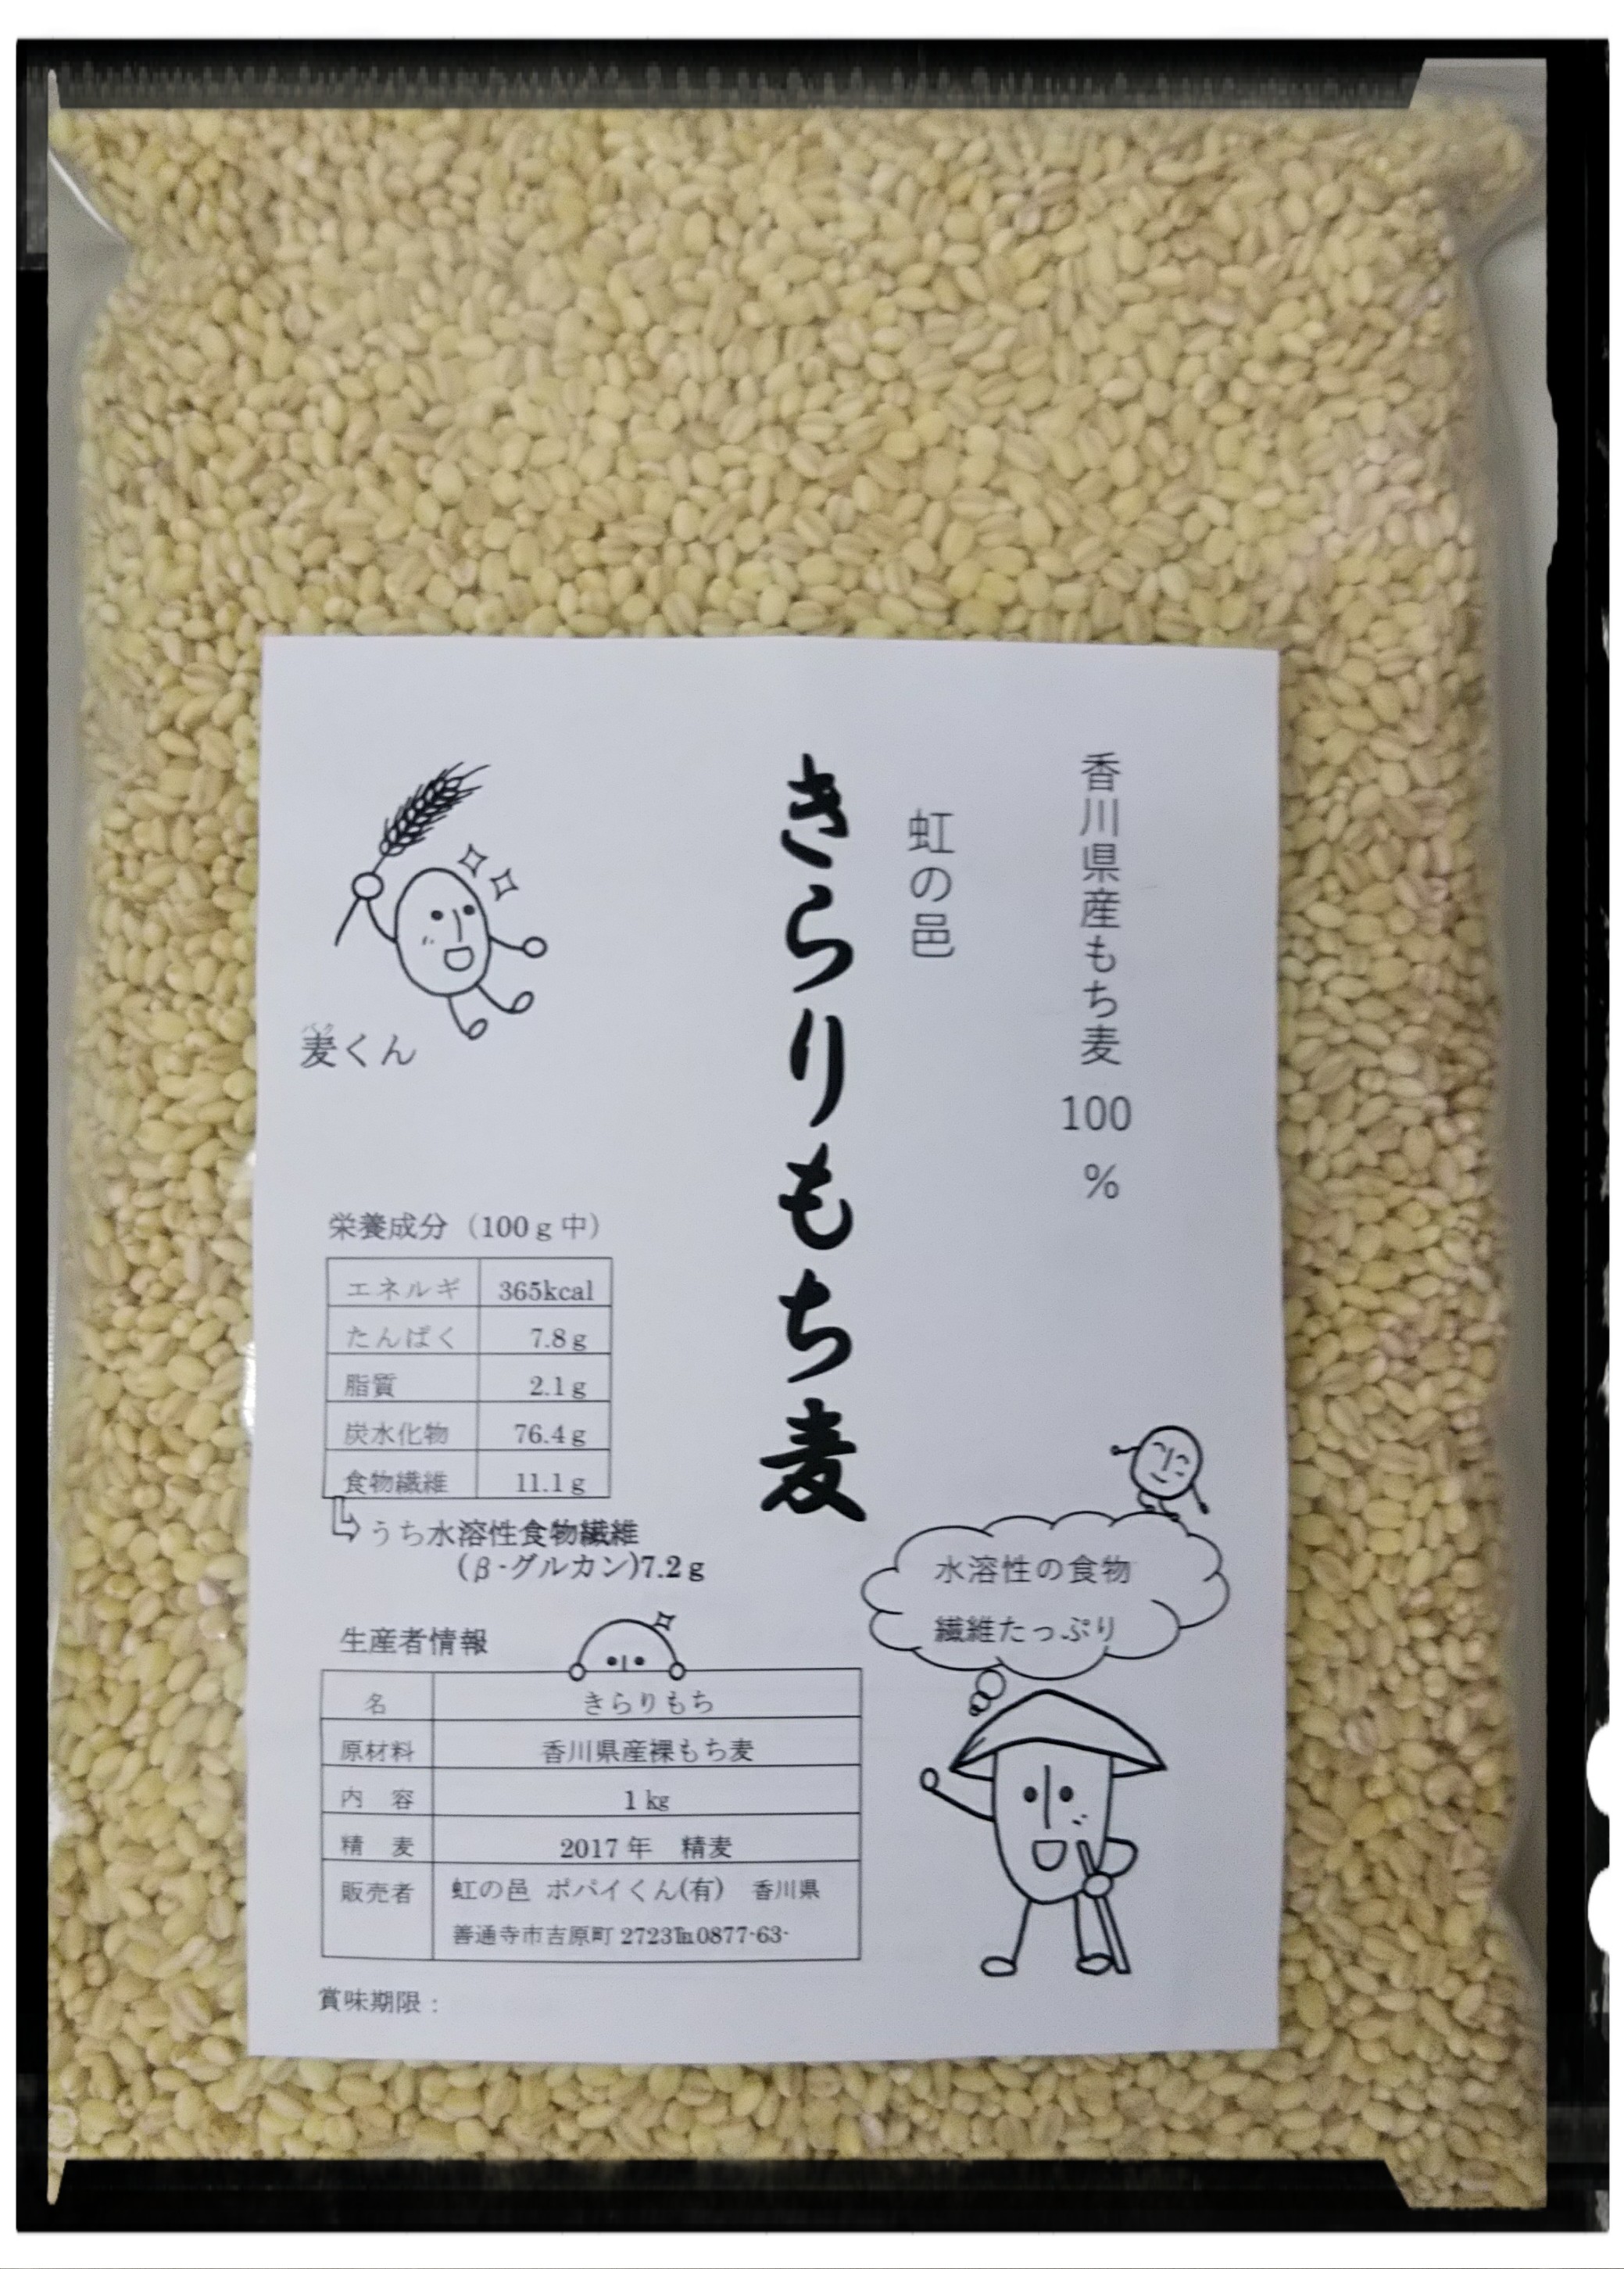 香川県産もち麦100%
虹の邑
きらりもち麦
麦くん
バク
栄養成分（100g中）
エネルギ 365kcal
たんぱく 7.8g
脂質 2.1g
炭水化物 76.4g
食物繊維 11.1g
うち水溶性食物繊維
(β-グルカン)7.2g
水溶性の食物
繊維たっぷり
生産者情報
名 きらりもち
原材料 香川県産裸もち麦
内　容 1㎏
精　麦 2017年　精麦
販売者 虹の邑 ポパイくん(有)　香川県
善通寺市吉原町2723℡0877-63-
賞味期限：